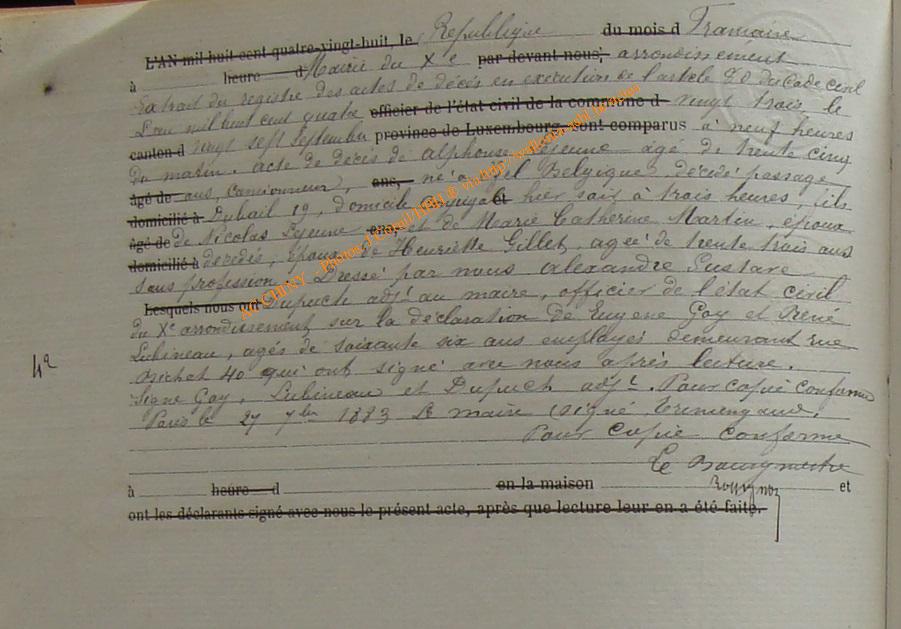 L'AN mil huit cent quatre-vingt-huit, le République du mois d Française
à heure d Mairie du Xe par devant nous, arrondissement
Extrait du registre des actes de décès en exécution de l'article 80 du Code civil
L'an mil huit cent quatre officier de l'état civil de la commune d vingt trois, le
canton d vingt sept Septembre province de Luxembourg sont comparus à neuf heures
du matin. acte de décès de Alphonse Lejeune âgé de trente cinq
âgé de ans, camionneur, ans, né à Belgique, décédé passage
domicilié à Dubail 19, domicile et hier soir à trois heures, fils
âgé de de Nicolas Lejeune ans, et de Marie Catherine Martin, époux
domicilié à décédés, époux de Henriette Gillet, agée de trente trois ans
sans profession. Dressé par nous Alexandre Gustave
Lesquels nous ont Dupuch adjt au maire, officier de l'état civil
du Xe arrondissement, sur la déclaration de Eugene Goy et René
Lubineau, agés de soixante six ans employés demeurant rue
Bichet 40 qui ont signé avec nous après lecture.
Signé Goy, Lubineau et Dupuch adjt. Pour copie conforme
Paris le 27 7bre 1883 Le maire (signé)
Pour copie conforme
Le Bourgmestre
à heure d en la maison et
Rossignon
ont les déclarants signé avec nous le présent acte, après que lecture leur en a été faite.